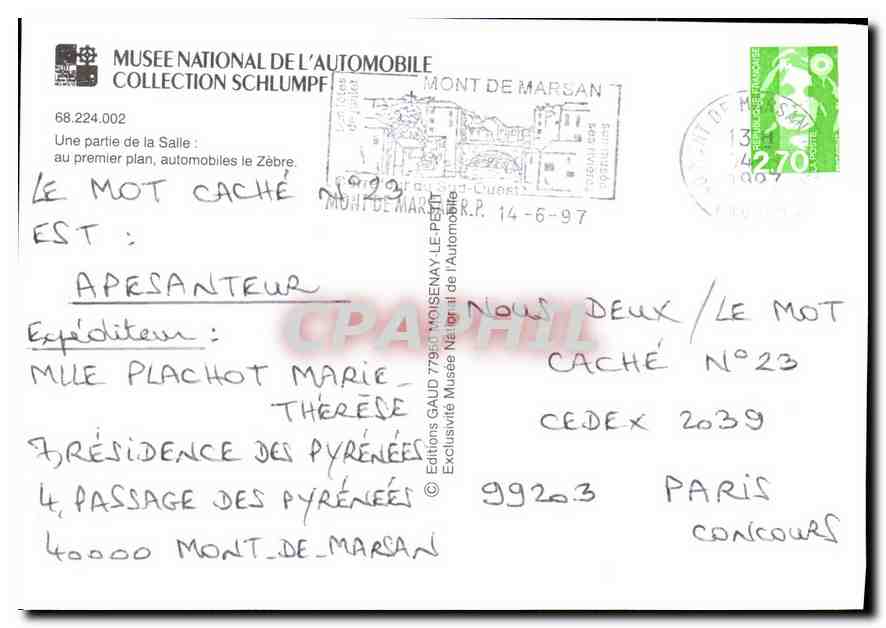 MUSEE NATIONAL DE L'AUTOMOBILE
COLLECTION SCHLUMPF
68.224.002
Une partie de la Salle :
au premier plan, automobiles le Zèbre.
MONT DE MARSAN
son musée
ses rivières
au Sud-Ouest
MONT DE MARSAN R.P. 14-6-97
MONT DE MARSAN
13
1997
RÉPUBLIQUE FRANÇAISE
2,70
LA POSTE
LE MOT CACHÉ N°23
EST :
APESANTEUR
Expéditeur :
MLLE PLACHOT MARIE-
THÉRÈSE
7, RÉSIDENCE DES PYRÉNÉES
4, PASSAGE DES PYRÉNÉES
40000 MONT-DE-MARSAN
© Editions GAUD 77950 MOISENAY-LE-PETIT
Exclusivité Musée National de l'Automobile
NOUS DEUX / LE MOT
CACHÉ N°23
CEDEX 2039
99203 PARIS
CONCOURS
CPAPHIL